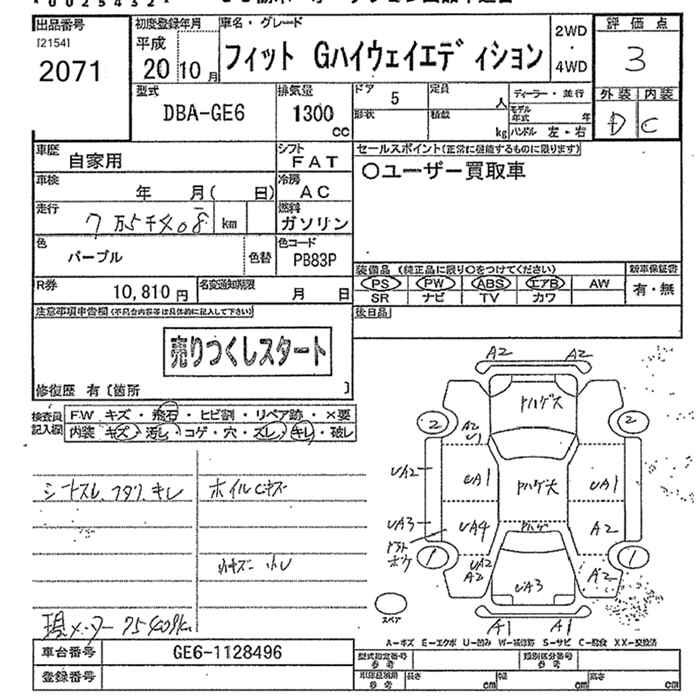 出品番号
[2154]
2071
初度登録年月
平成
20 10月
車名・グレード
フィット Gハイウェイエディション
2WD
・
4WD
評価点
3
外装 内装
D C
型式
DBA-GE6
排気量
1300
CC
ドア
5
定員
人
形状
積載
kg
ディーラー・並行
モデル年式 年
ハンドル 左・右
車歴
自家用
シフト
FAT
車検
年 月( 日)
冷房
AC
走行
7万5千408 km
燃料
ガソリン
色
パープル
色替
色コード
PB83P
R券
10,810円
名変通知期限
月 日
セールスポイント(正常に機能するものに限ります)
○ユーザー買取車
装備品 (純正品に限り○をつけてください)
PS PW ABS エアB AW
SR ナビ TV カワ
新車保証書
有・無
後日品
注意事項申告欄(不具合内容等は具体的に記入して下さい)
売りつくしスタート
修復歴 有〔箇所 〕
検査員記入欄
F.W キズ・飛石・ヒビ割・リペア跡・×要
内装 キズ・汚れ・コゲ・穴・スレ・キレ・破レ
シートスレ
キレ
ホイルキズ
現メーター 75408km
A2 A2
トハゲ大
2 2
A2
U1
UA2
UA1
トハゲ大
UA1
UA3
UA4
トハゲ
A2
1
UA2
A2
UA3
A2
1
スペア
A1 A1
A-キズ E-エクボ U-凹み W-補修跡 S-サビ C-腐食 XX-交換済
車台番号
GE6-1128496
登録番号
型式指定番号
参考
類別区分番号
参考
車体寸法
参考
長さ cm
幅 cm
高さ cm